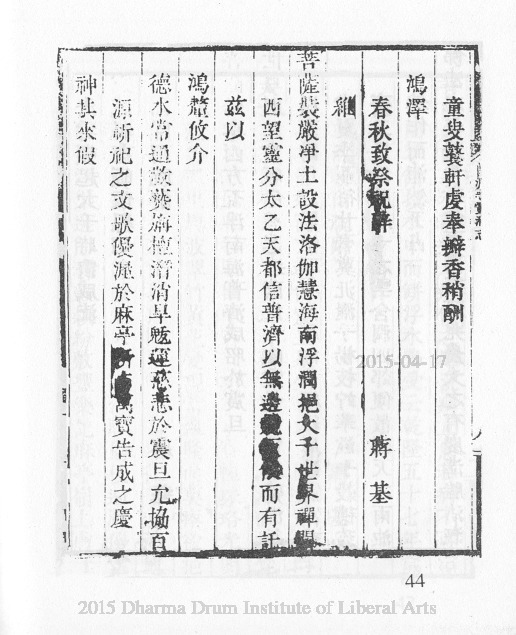 童叟鼚軒虔奉瓣香稍酬
鴻澤
春秋致祭祝辭
蔣基
維
菩薩裝嚴凈土設法洛伽慧海南浮潤挹大千世界禪
西望靈分太乙天都信普濟以無邊而有託
茲以
鴻釐攸介
德水常通藝旃檀潛消旱魃運慈悲於震旦允協百
源祈祀之文歌優渥於麻亭萬寶告成之慶
神其來假
2015-04-17
44
2015 Dharma Drum Institute of Liberal Arts